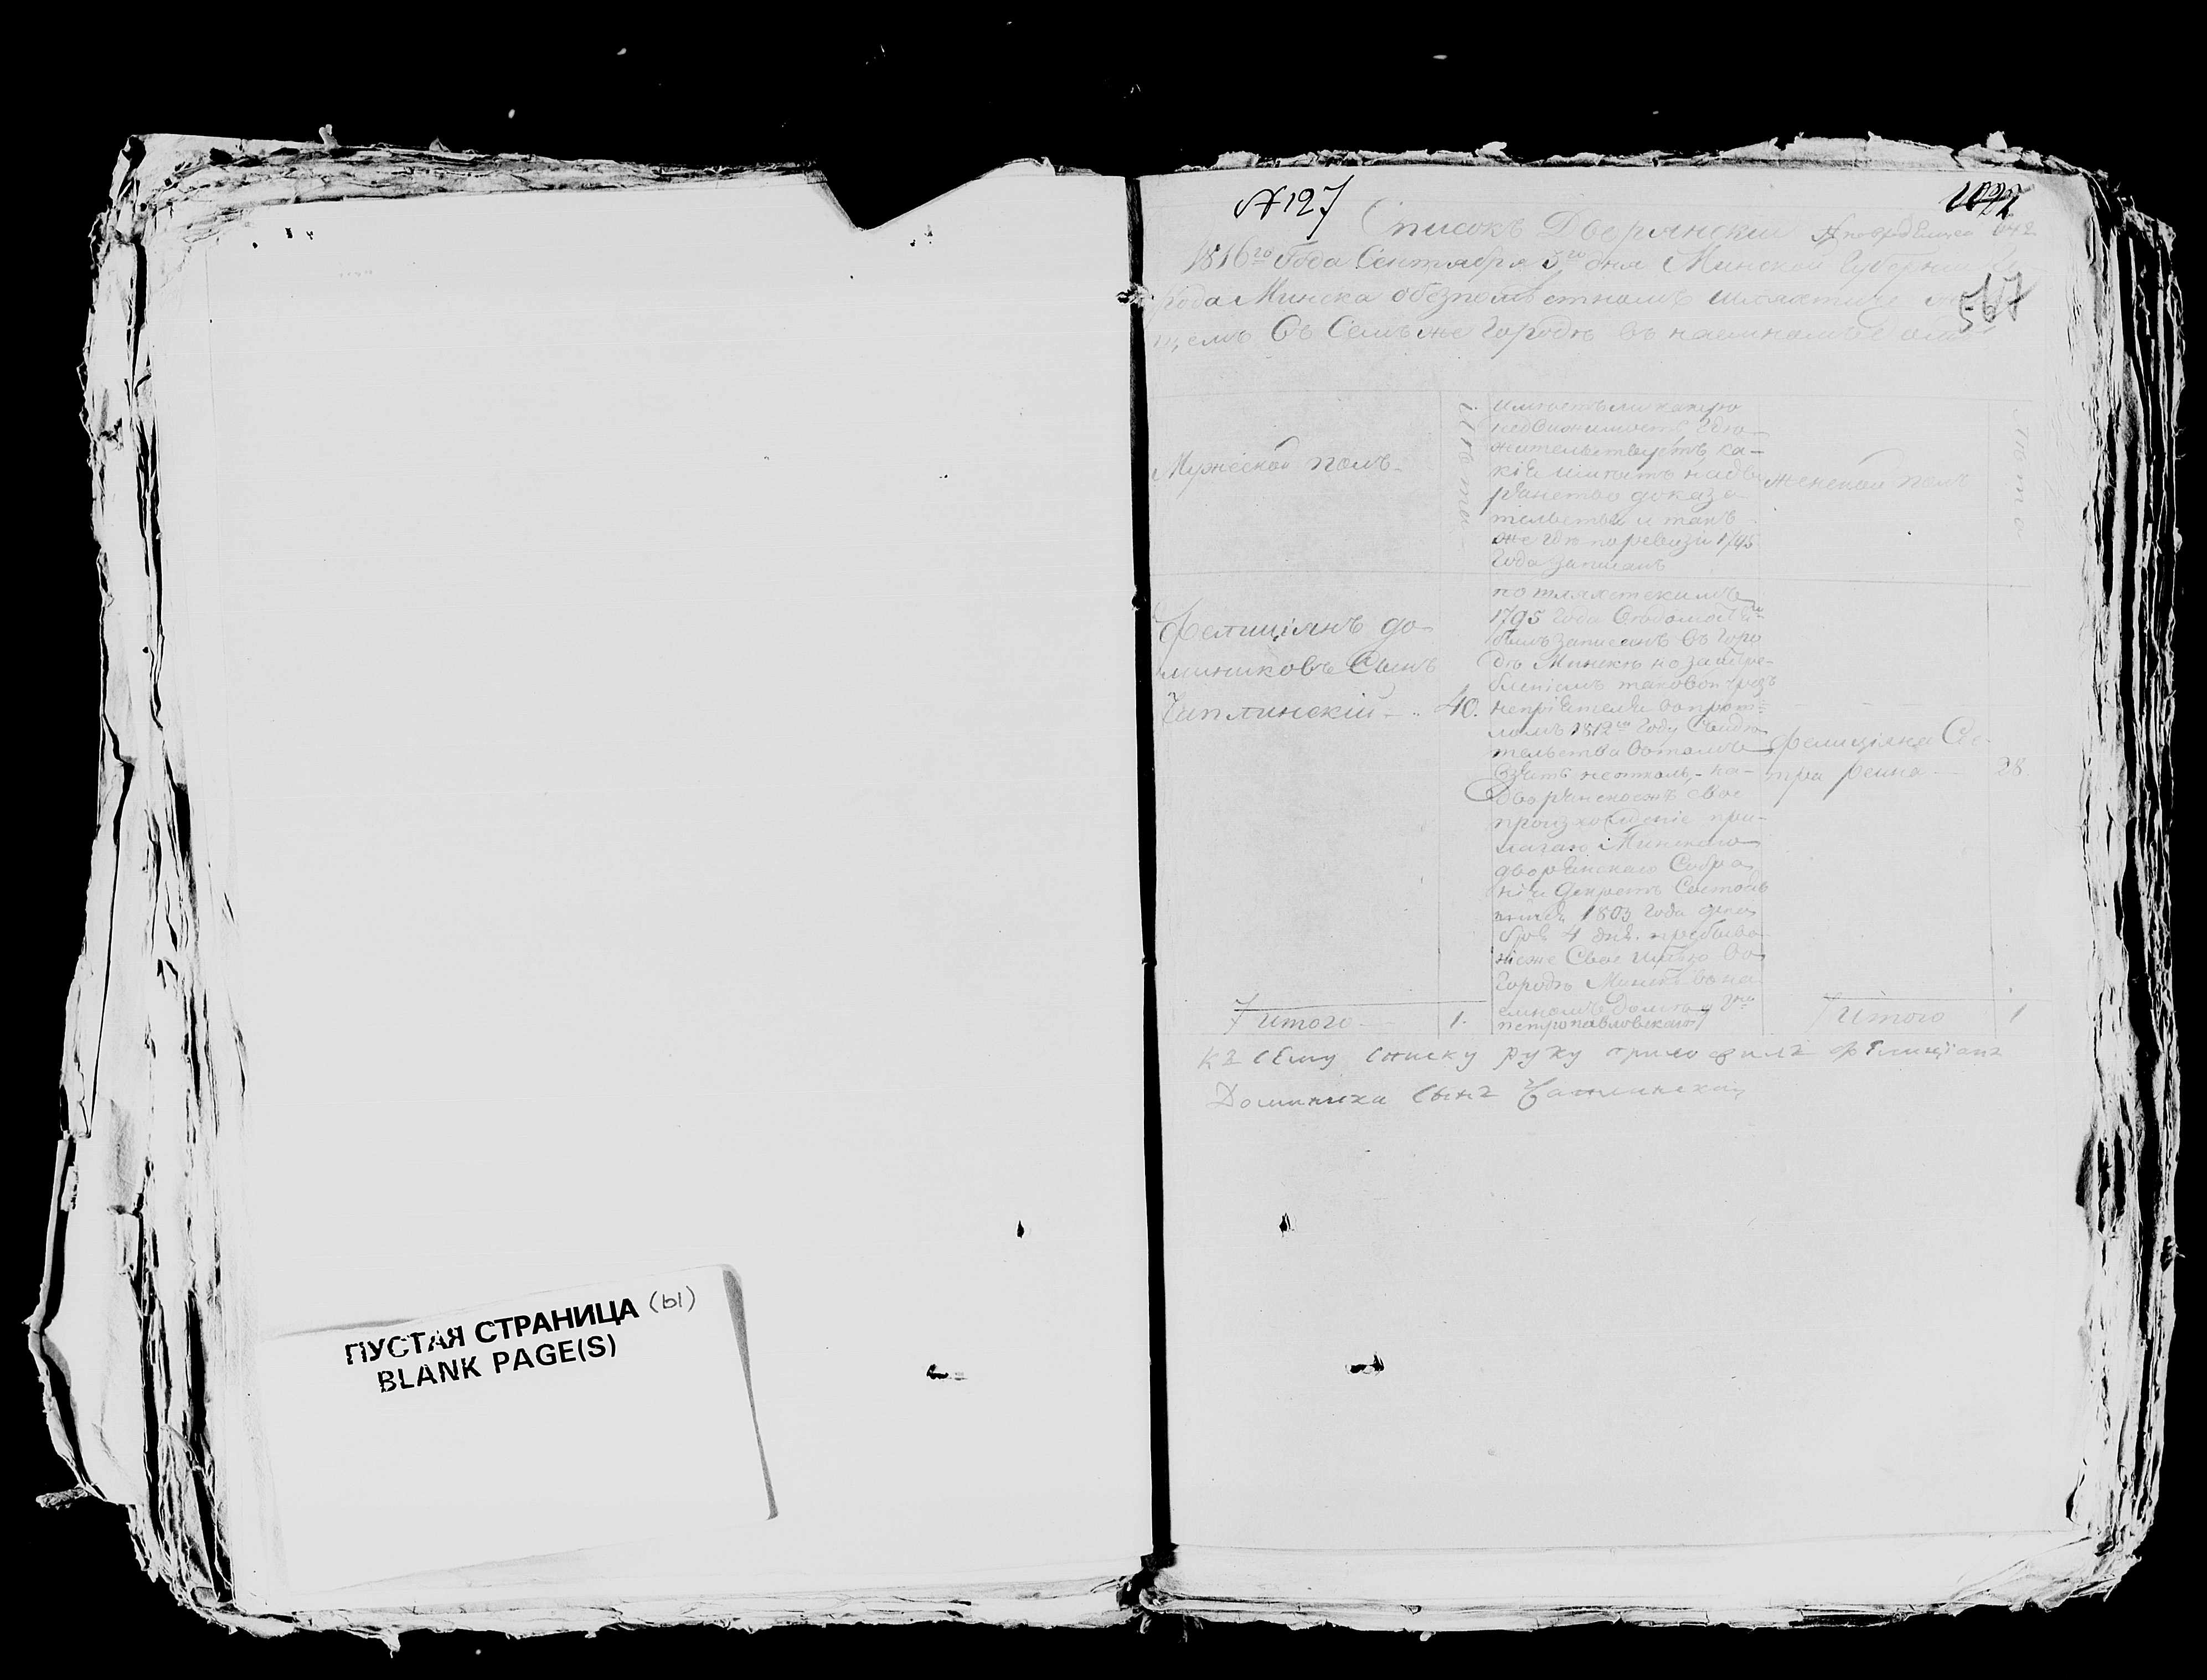 ПУСТАЯ СТРАНИЦА (ы)
BLANK PAGE(S)
№ 127
Списокъ Дворянский
1816го Года Сентября 3го дня Минской Губернии
рода Минска обезпомѣстномъ шляхтиче
щемъ Въ Семъ же Городѣ въ наемномъ
567
Мужескои полъ
Лѣта
имѣетъ ли какую
недвижимость Гдѣ
жительствуетъ ка-
кія имѣетъ надво
рянство доказа
тельства и такъ
же гдѣ поревизи 1795
Года записанъ
женскои полъ
Лѣта
Фелиціянъ до
миниковъ Сынъ
Чаплинскій 40.
по шляхетскимъ
1795 года
былъ записанъ въ Горо
дѣ Минскѣ но за истре
бленіемъ таковои чрезъ
непріятеля вопрош
ломъ 1812го Году Свидѣ
тельства вотомъ
взять неотколь, на
Дворянскоежъ свое
произхожденіе при-
лагаю Минскаго
дворянскаго Собра
нія Декретъ Состояв
шійся 1803 Года дека
бря 4 дня. пребыва
ніеже Свое имѣю во
Городѣ Минскѣ вона
емномъ домѣ у Гна
петропавловскаго
Фелиціяна Се
стра 28
Итого 1.
Итого 1
къ сему списку руку приложилъ Фелиціанъ
Доминика Сынъ Чаплинскій